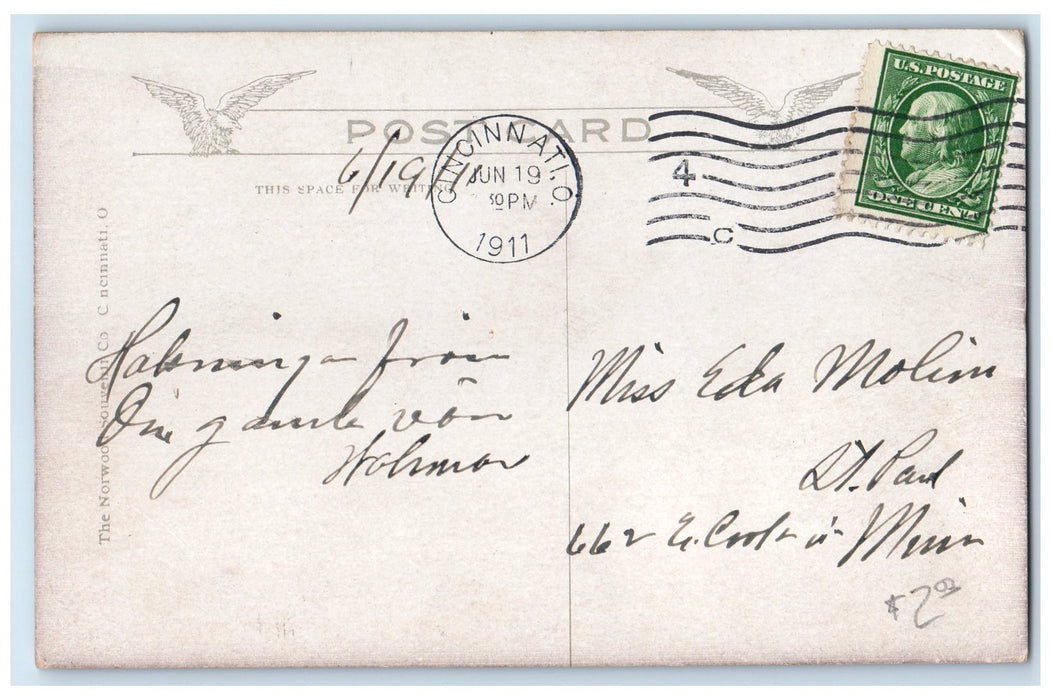 U.S.POSTAGE
ONE CENT
POST CARD
CINCINNATI.O.
JUN 19
30 PM
1911
4
C
6/19/11
THIS SPACE FOR WRITING
The Norwood Souvenir Co Cincinnati. O
Halsningar från
Din gamle vän
Wolmar
Miss Eda Molin
St. Paul
662 E. Cook
Minn
$2.00